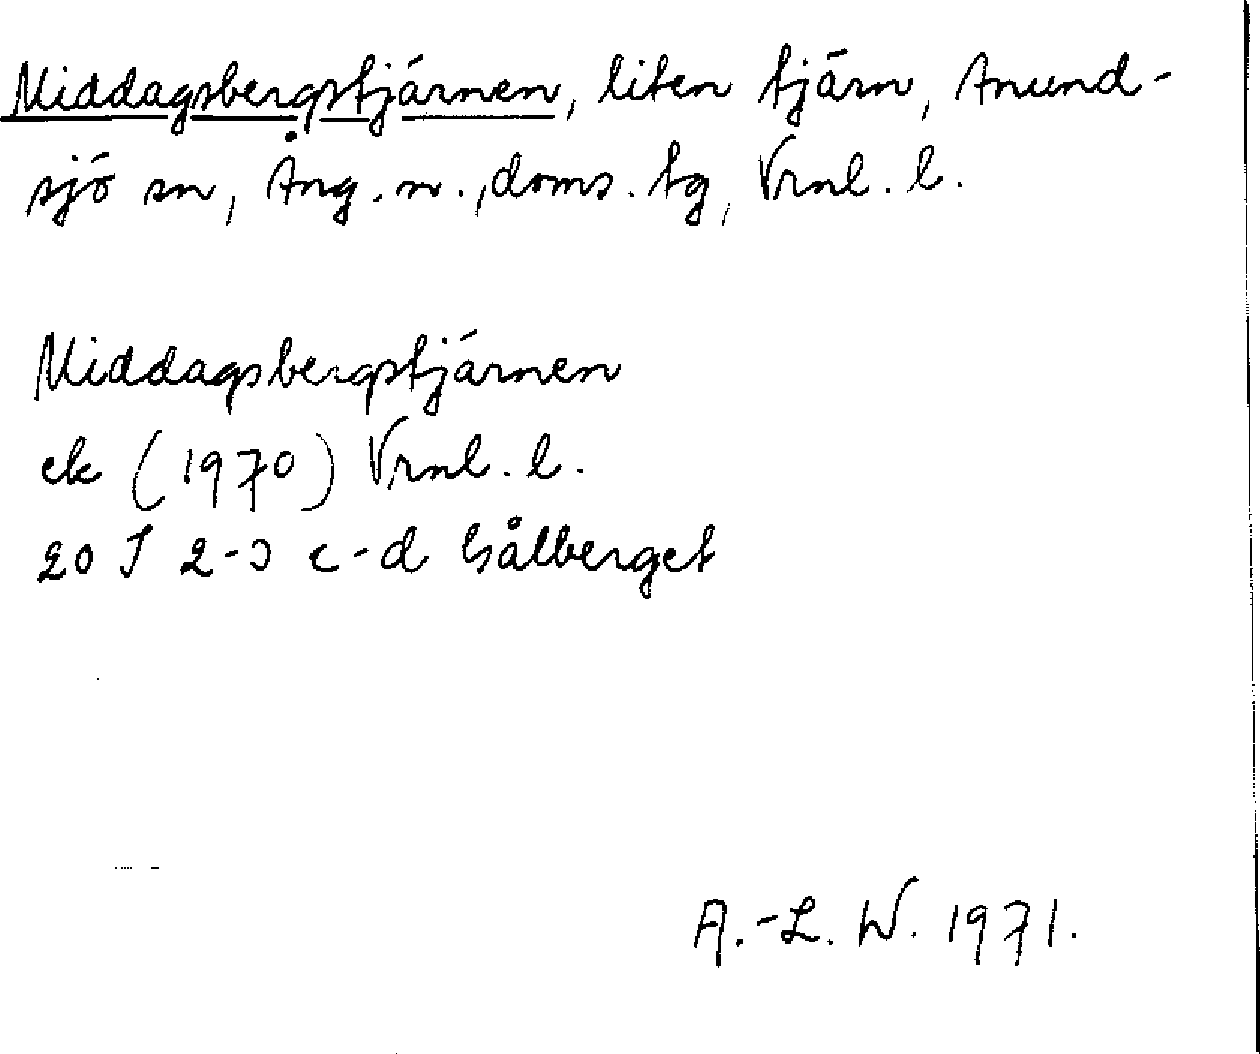 Middagsbergstjärnen, liten tjärn, Anund-
sjö sn, Ång. n., doms. tg, Vrnl. l.
Middagsbergstjärnen
ek (1970) Vrnl. l.
20 I 2-3 c-d Gålberget
A.-L. W. 1971.